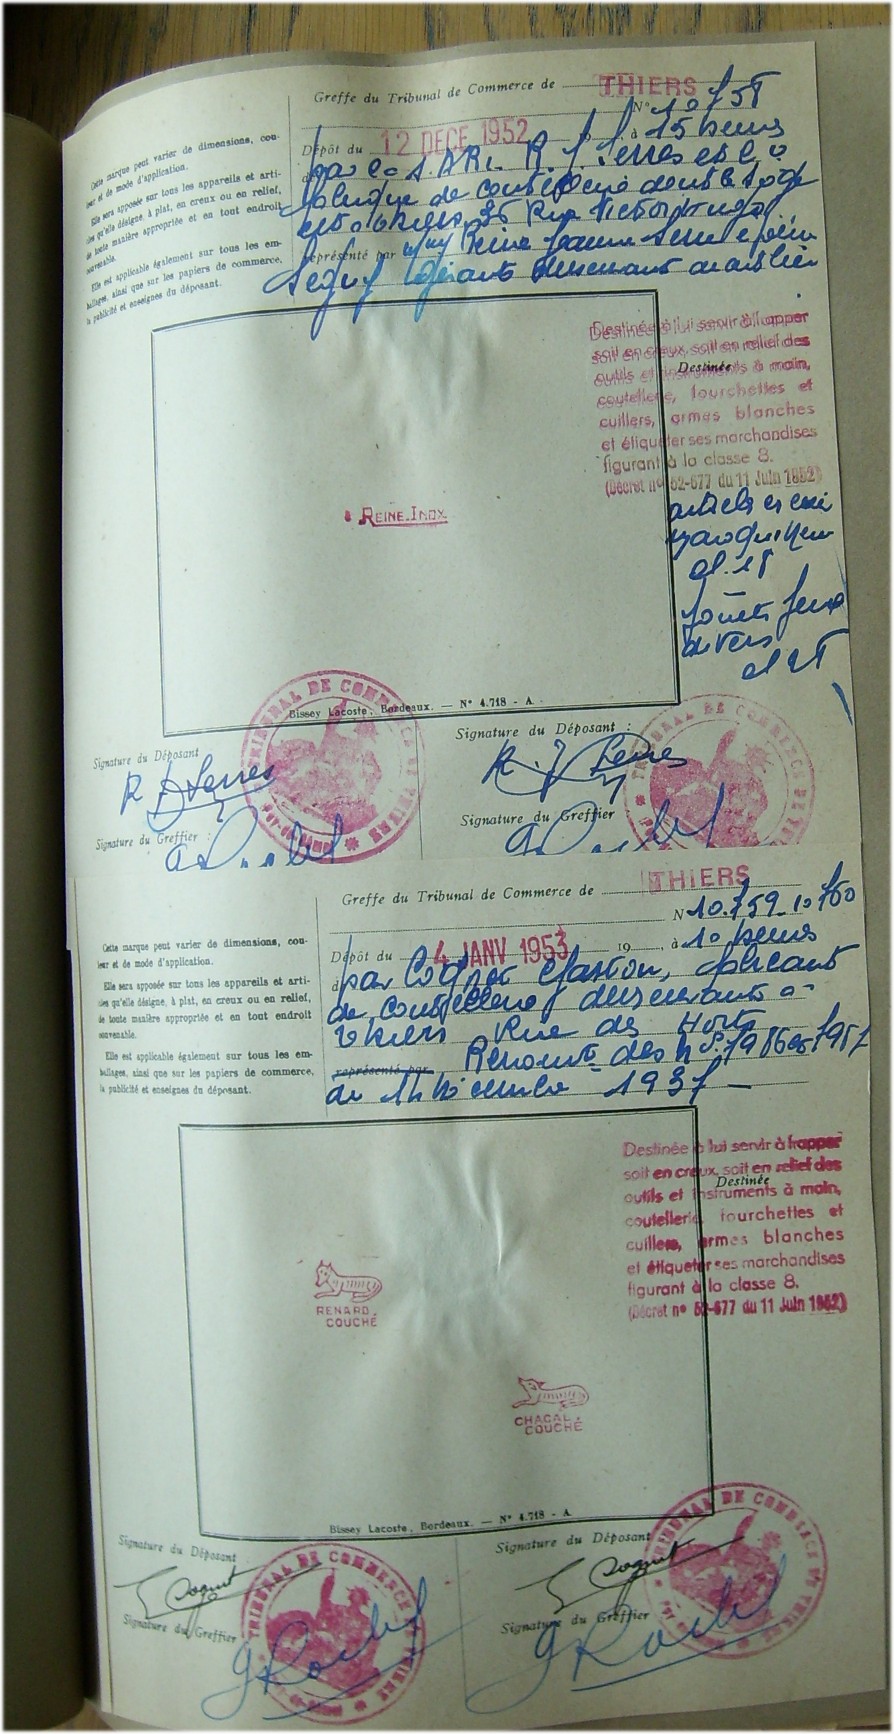 Greffe du Tribunal de Commerce de THIERS
N° 10.758
Dépôt du 12 DECE 1952 à 15 heures
par la S.A.R.L. R. J. Serres et Cie
fabrique de coutellerie dont le siège
est à Thiers, 36 Rue Victor Hugo
représenté par Reine Jeanne Serre
Seguy gérante demeurant au dit lieu
Cette marque peut varier de dimensions, cou-
leur et de mode d'application.
Elle sera apposée sur tous les appareils et arti-
cles qu'elle désigne, à plat, en creux ou en relief,
de toute manière appropriée et en tout endroit
convenable.
Elle est applicable également sur tous les em-
ballages, ainsi que sur les papiers de commerce,
la publicité et enseignes du déposant.
Destinée
Destinée à lui servir à frapper
soit en creux, soit en relief des
outils et instruments à main,
coutellerie, fourchettes et
cuillers, armes blanches
et étiqueter ses marchandises
figurant à la classe 8.
(Décret n° 52-677 du 11 Juin 1952)
articles en cuir
maroquinerie
cl. 18
divers
REINE.INOX
Bissey Lacoste, Bordeaux. — N° 4.718 - A
TRIBUNAL DE COMMERCE DE THIERS
PUY-DE-DÔME
TRIBUNAL DE COMMERCE DE THIERS
Signature du Déposant
R J Serres
Signature du Déposant :
R. J Serres
Signature du Greffier :
Signature du Greffier
Greffe du Tribunal de Commerce de THIERS
N° 10.759-10760
Dépôt du 4 JANV 1953 19 à 10 heures
par Cognet Gaston, fabricant
de coutellerie demeurant à
Thiers Rue des Horts
représenté par Renouvt des Nos 7986 et 7987
du 14 Décembre 1937
Cette marque peut varier de dimensions, cou-
leur et de mode d'application.
Elle sera apposée sur tous les appareils et arti-
cles qu'elle désigne, à plat, en creux ou en relief,
de toute manière appropriée et en tout endroit
convenable.
Elle est applicable également sur tous les em-
ballages, ainsi que sur les papiers de commerce,
la publicité et enseignes du déposant.
Destinée
Destinée à lui servir à frapper
soit en creux, soit en relief des
outils et instruments à main,
coutellerie, fourchettes et
cuillers, armes blanches
et étiqueter ses marchandises
figurant à la classe 8.
(Décret n° 52-677 du 11 Juin 1952)
RENARD.
COUCHÉ
CHACAL.
COUCHÉ
Bissey Lacoste, Bordeaux. — N° 4.718 - A
TRIBUNAL DE COMMERCE DE THIERS
PUY-DE-DÔME
TRIBUNAL DE COMMERCE DE THIERS
Signature du Déposant
G Cognet
Signature du Déposant
G Cognet
Signature du Greffier
Signature du Greffier